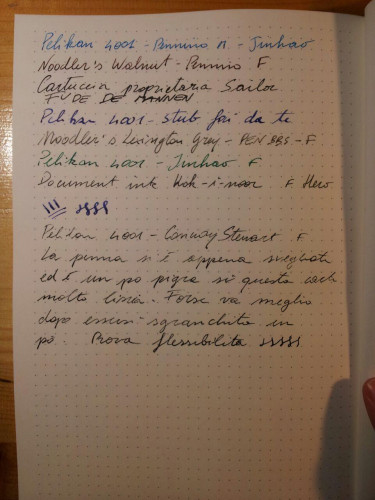 Pelikan 4001 - Pennino M - Jinhao
Noodler's Walnut - Pennino F
Cartuccia proprietaria Sailor
FUDE DE MANNEN
Pelikan 4001 - stub fai da te
Noodler's Lexington Gray - PENBBS - F
Pelikan 4001 - Jinhao F
Document ink Koh-i-noor F Hero
Pelikan 4001 - Conway Stewart F
La penna si è appena svegliata
ed è un po pigra su questa carta
molto liscia. Forse va meglio
dopo essersi sgranchita un
pò. Prova flessibilità